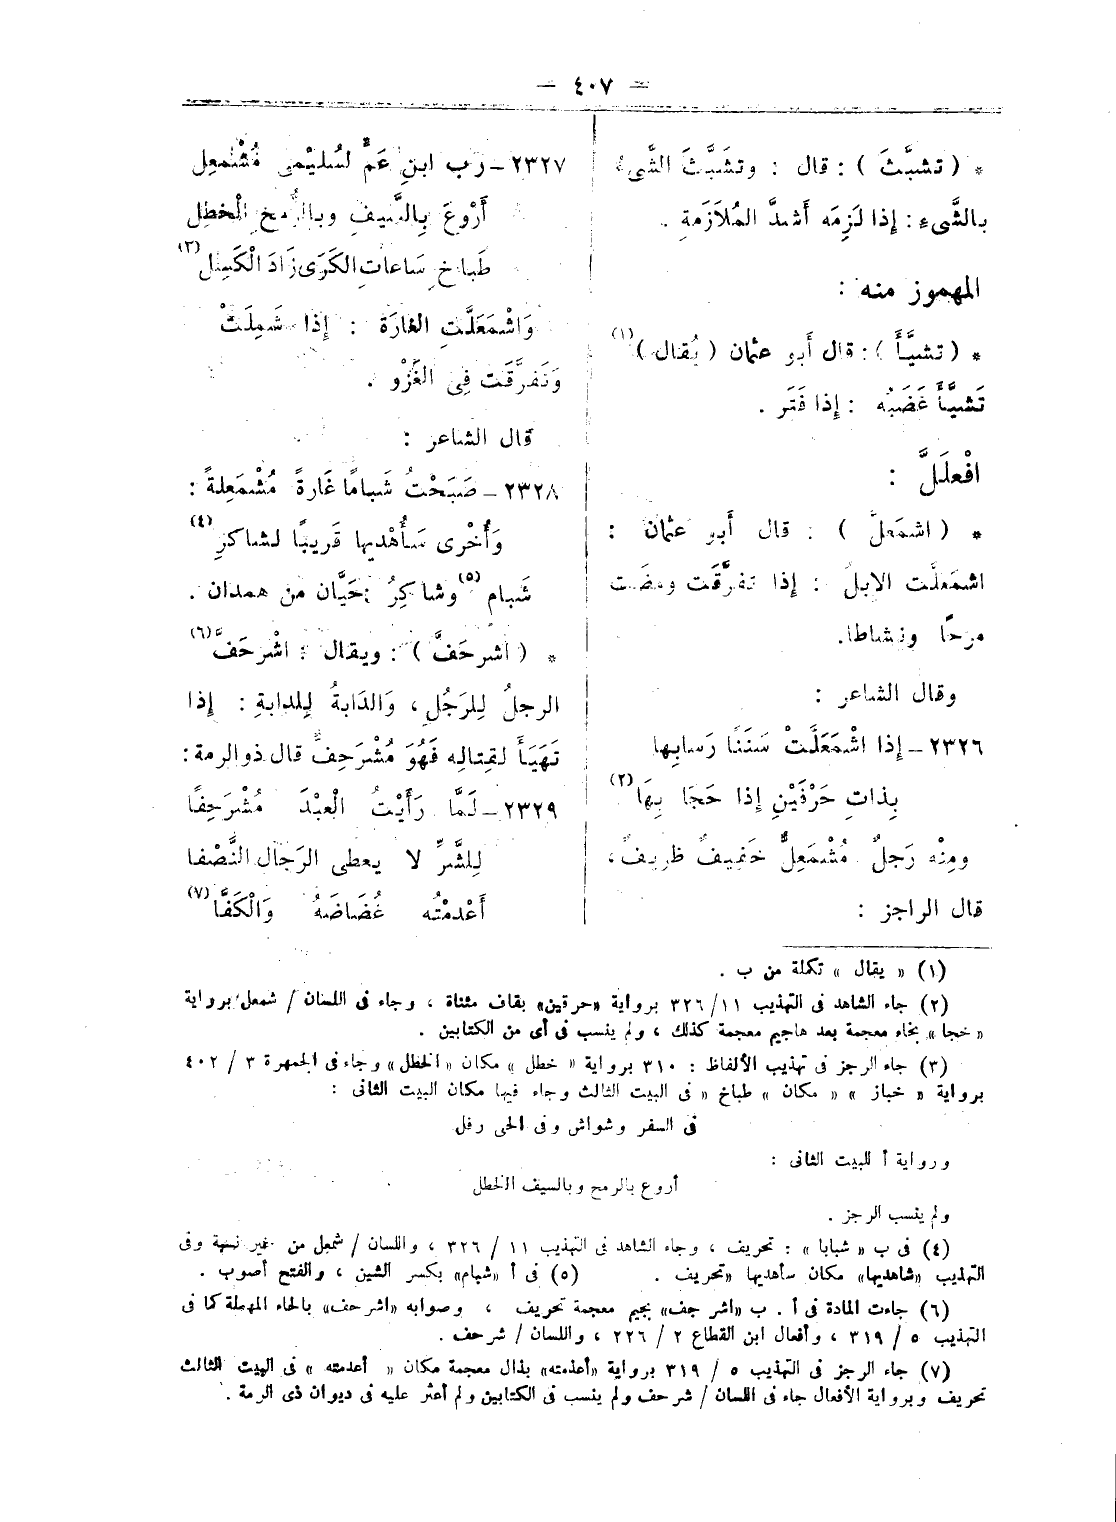 — ٤٠٧ —
* ( تشبَّثَ ) : قال : وتشَبَّثَ الشَّيءُ
بالشَّيءِ : إذا لَزِمَه أَشدَّ المُلَازَمةِ .
المهموز منه :
* ( تشيَّأَ ) : قال أَبو عثمان ( يُقال )(١)
تَشَيَّأَ غَضَبُه : إذا فَتَر .
افْعلَلَّ :
* ( اشمَعلَّ ) : قال أَبو عثمان :
اشمَعلَّت الابلُ : إذا تفرَّقَت ومضَت
مرحًا ونشاطا.
وقال الشاعر :
٢٣٢٦ – إذا اشْمَعَلَّتْ سَنَنًا رَسابِها
بِذاتِ حَرْفَيْنِ إذا حَجَا بِهَا(٢)
ومِنْه رَجلٌ مُشْمَعِلٌّ خَفِيفٌ ظرِيفٌ،
قال الراجز :
٢٣٢٧ – رَب ابنِ عَمٍّ لسُليْمى مُشْمعِل
أَرْوَعَ بِالسَّيفِ وبالرُّمحِ الْخطِل
طَباخِ سَاعاتِ الكَرَى زَادَ الْكَسِل(٣)
وَاشْمَعَلَّتِ الغارَة : إذا شَمِلَتْ
وَتَفرَّقَت فِى الغَزْو .
قال الشاعر :
٢٣٢٨ – صَبَحْتُ شَبامًا غَارةً مُشْمَعِلةً :
وَأُخْرى سَأُهْدِيها قَرِيبًا لشاكرِ(٤)
شَبام(٥) وشاكِرُ : حَيَّان من همدان .
* ( اشرحَفَّ ) : ويقال : اشْرحَفَّ(٦)
الرجلُ لِلرَجُلِ ، وَالدَابةُ لِلدابةِ : إذا
تَهَيَأَ لقِتالِه فَهُوَ مُشْرَحِفٌّ قال ذو الرمة :
٢٣٢٩ – لَمَّا رَأَيْتُ الْعبْدَ مُشْرَحِفًا
لِلشَّرِّ لا يعطى الرَجال النَّصْفا
أَعْدمْتُه غُضَاضَهُ وَالْكَفَّا(٧)
(١) « يقال » تكملة من ب .
(٢) جاء الشاهد فى التهذيب ١١/ ٣٢٦ برواية «حرقين» بقاف مثناة ، وجاء فى اللسان / شمعل برواية
« خجا » بخاء معجمة بعد هاجيم معجمة كذلك ، ولم ينسب فى أى من الكتابين .
(٣) جاء الرجز فى تهذيب الألفاظ : ٣١٠ برواية « خطل » مكان « الخطل » وجاء فى الجمهرة ٣ / ٤٠٢
برواية « خباز » « مكان » طباخ « فى البيت الثالث وجاء فيها مكان البيت الثانى :
فى السفر وشواش وفى الحى رفل
ورواية أ للبيت الثانى :
أروع بالرمح وبالسيف الخطل
ولم ينسب الرجز .
(٤) فى ب « شبابا » : تحريف ، وجاء الشاهد فى التهذيب ١١ / ٣٢٦ ، واللسان / شمعل من غير نسبة وفى
التهذيب «شاهديها» مكان سأهديها «تحريف . (٥) فى أ «شبام» بكسر الشين ، والفتح أصوب .
(٦) جاءت المادة فى أ . ب «اشر جف» بجيم معجمة تحريف ، وصوابه «اشرحف» بالحاء المهملة كما فى
التهذيب ٥ / ٣١٩ ، وأفعال ابن القطاع ٢ / ٢٢٦ ، واللسان / شرحف .
(٧) جاء الرجز فى التهذيب ٥ / ٣١٩ برواية «أعذمته» بذال معجمة مكان « أعدمته » فى البيت الثالث
تحريف وبرواية الأفعال جاء فى اللسان / شرحف ولم ينسب فى الكتابين ولم أعثر عليه فى ديوان ذى الرمة .